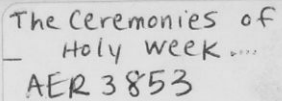 The Ceremonies of
— Holy Week....
AER 3853